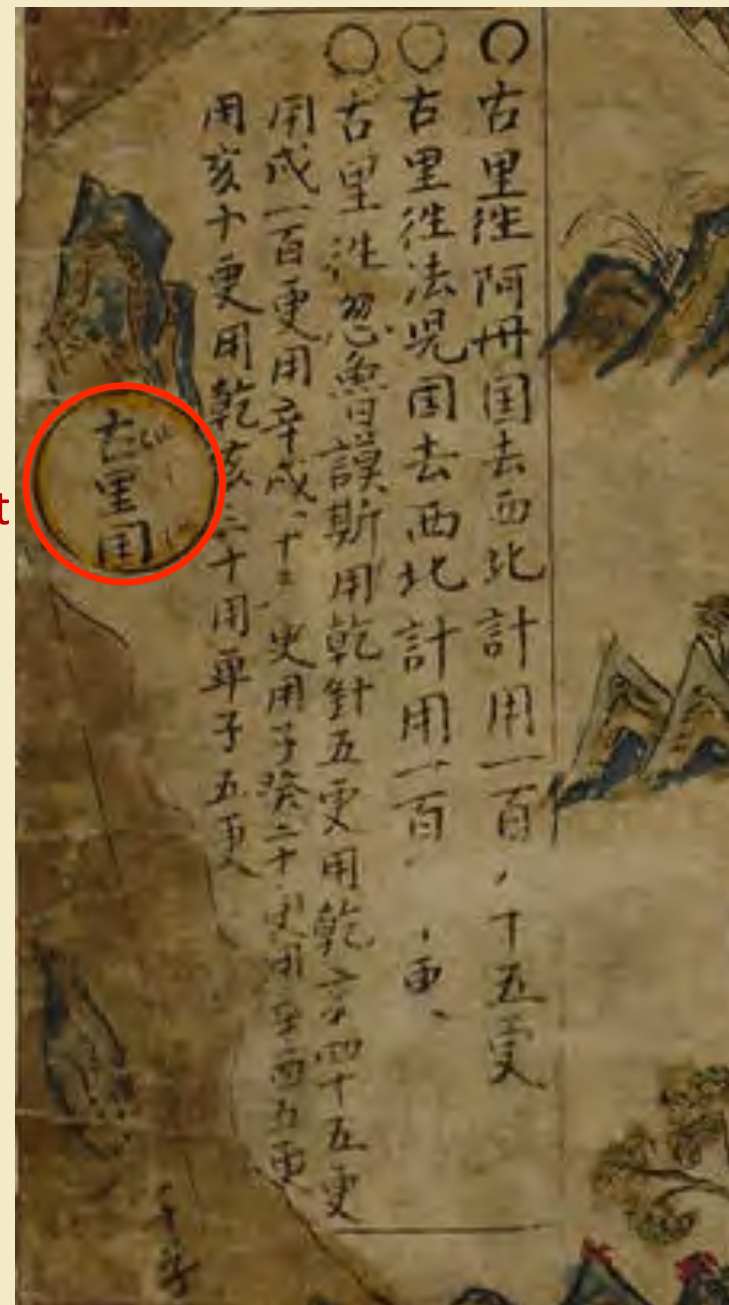 古里徃阿丹国去西北計用一百
十五更
古里徃法児国去西北計用一百
更
古里徃忽魯謨斯用乾針五更用乾亥四十五更
用戌一百更用辛戌十三更用子癸二十更用辛酉五更
用亥十更用乾亥三十用单子五更
古里国
t